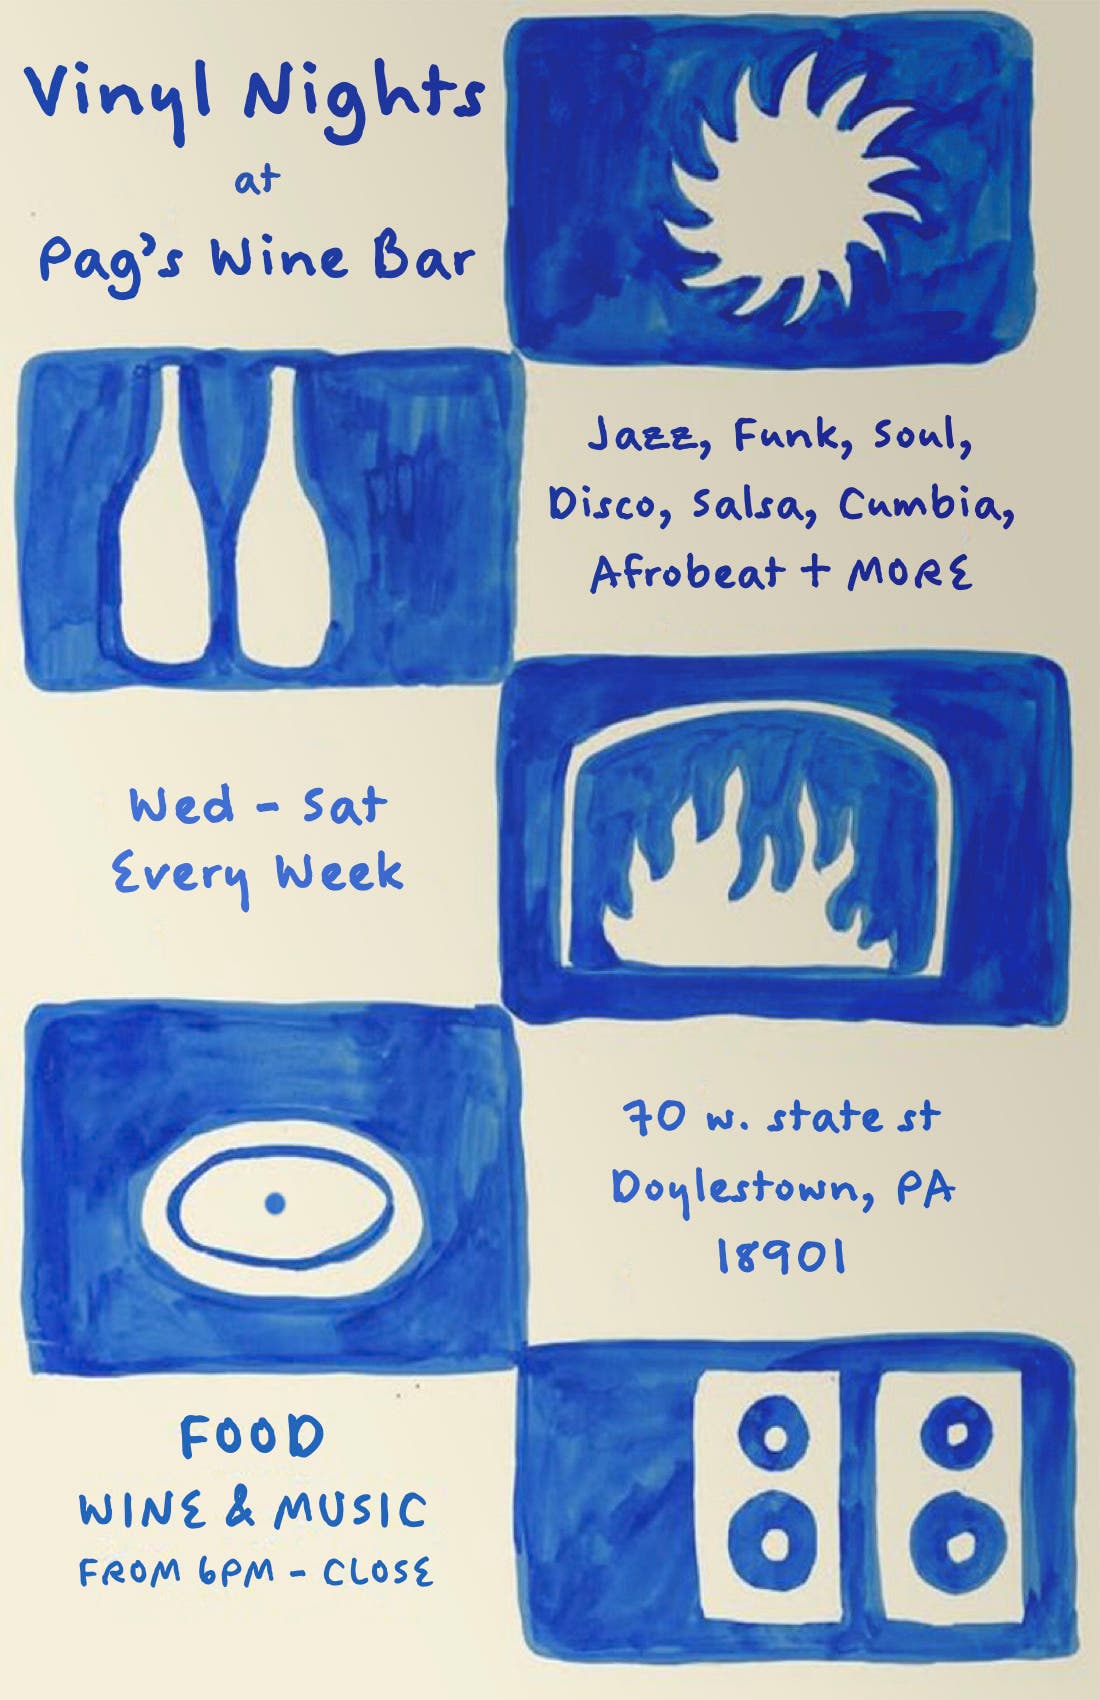 Vinyl Nights
at
Pag's Wine Bar
Jazz, Funk, Soul,
Disco, Salsa, Cumbia,
Afrobeat + MORE
Wed - Sat
Every Week
70 w. state st
Doylestown, PA
18901
FOOD
WINE & MUSIC
FROM 6PM - CLOSE